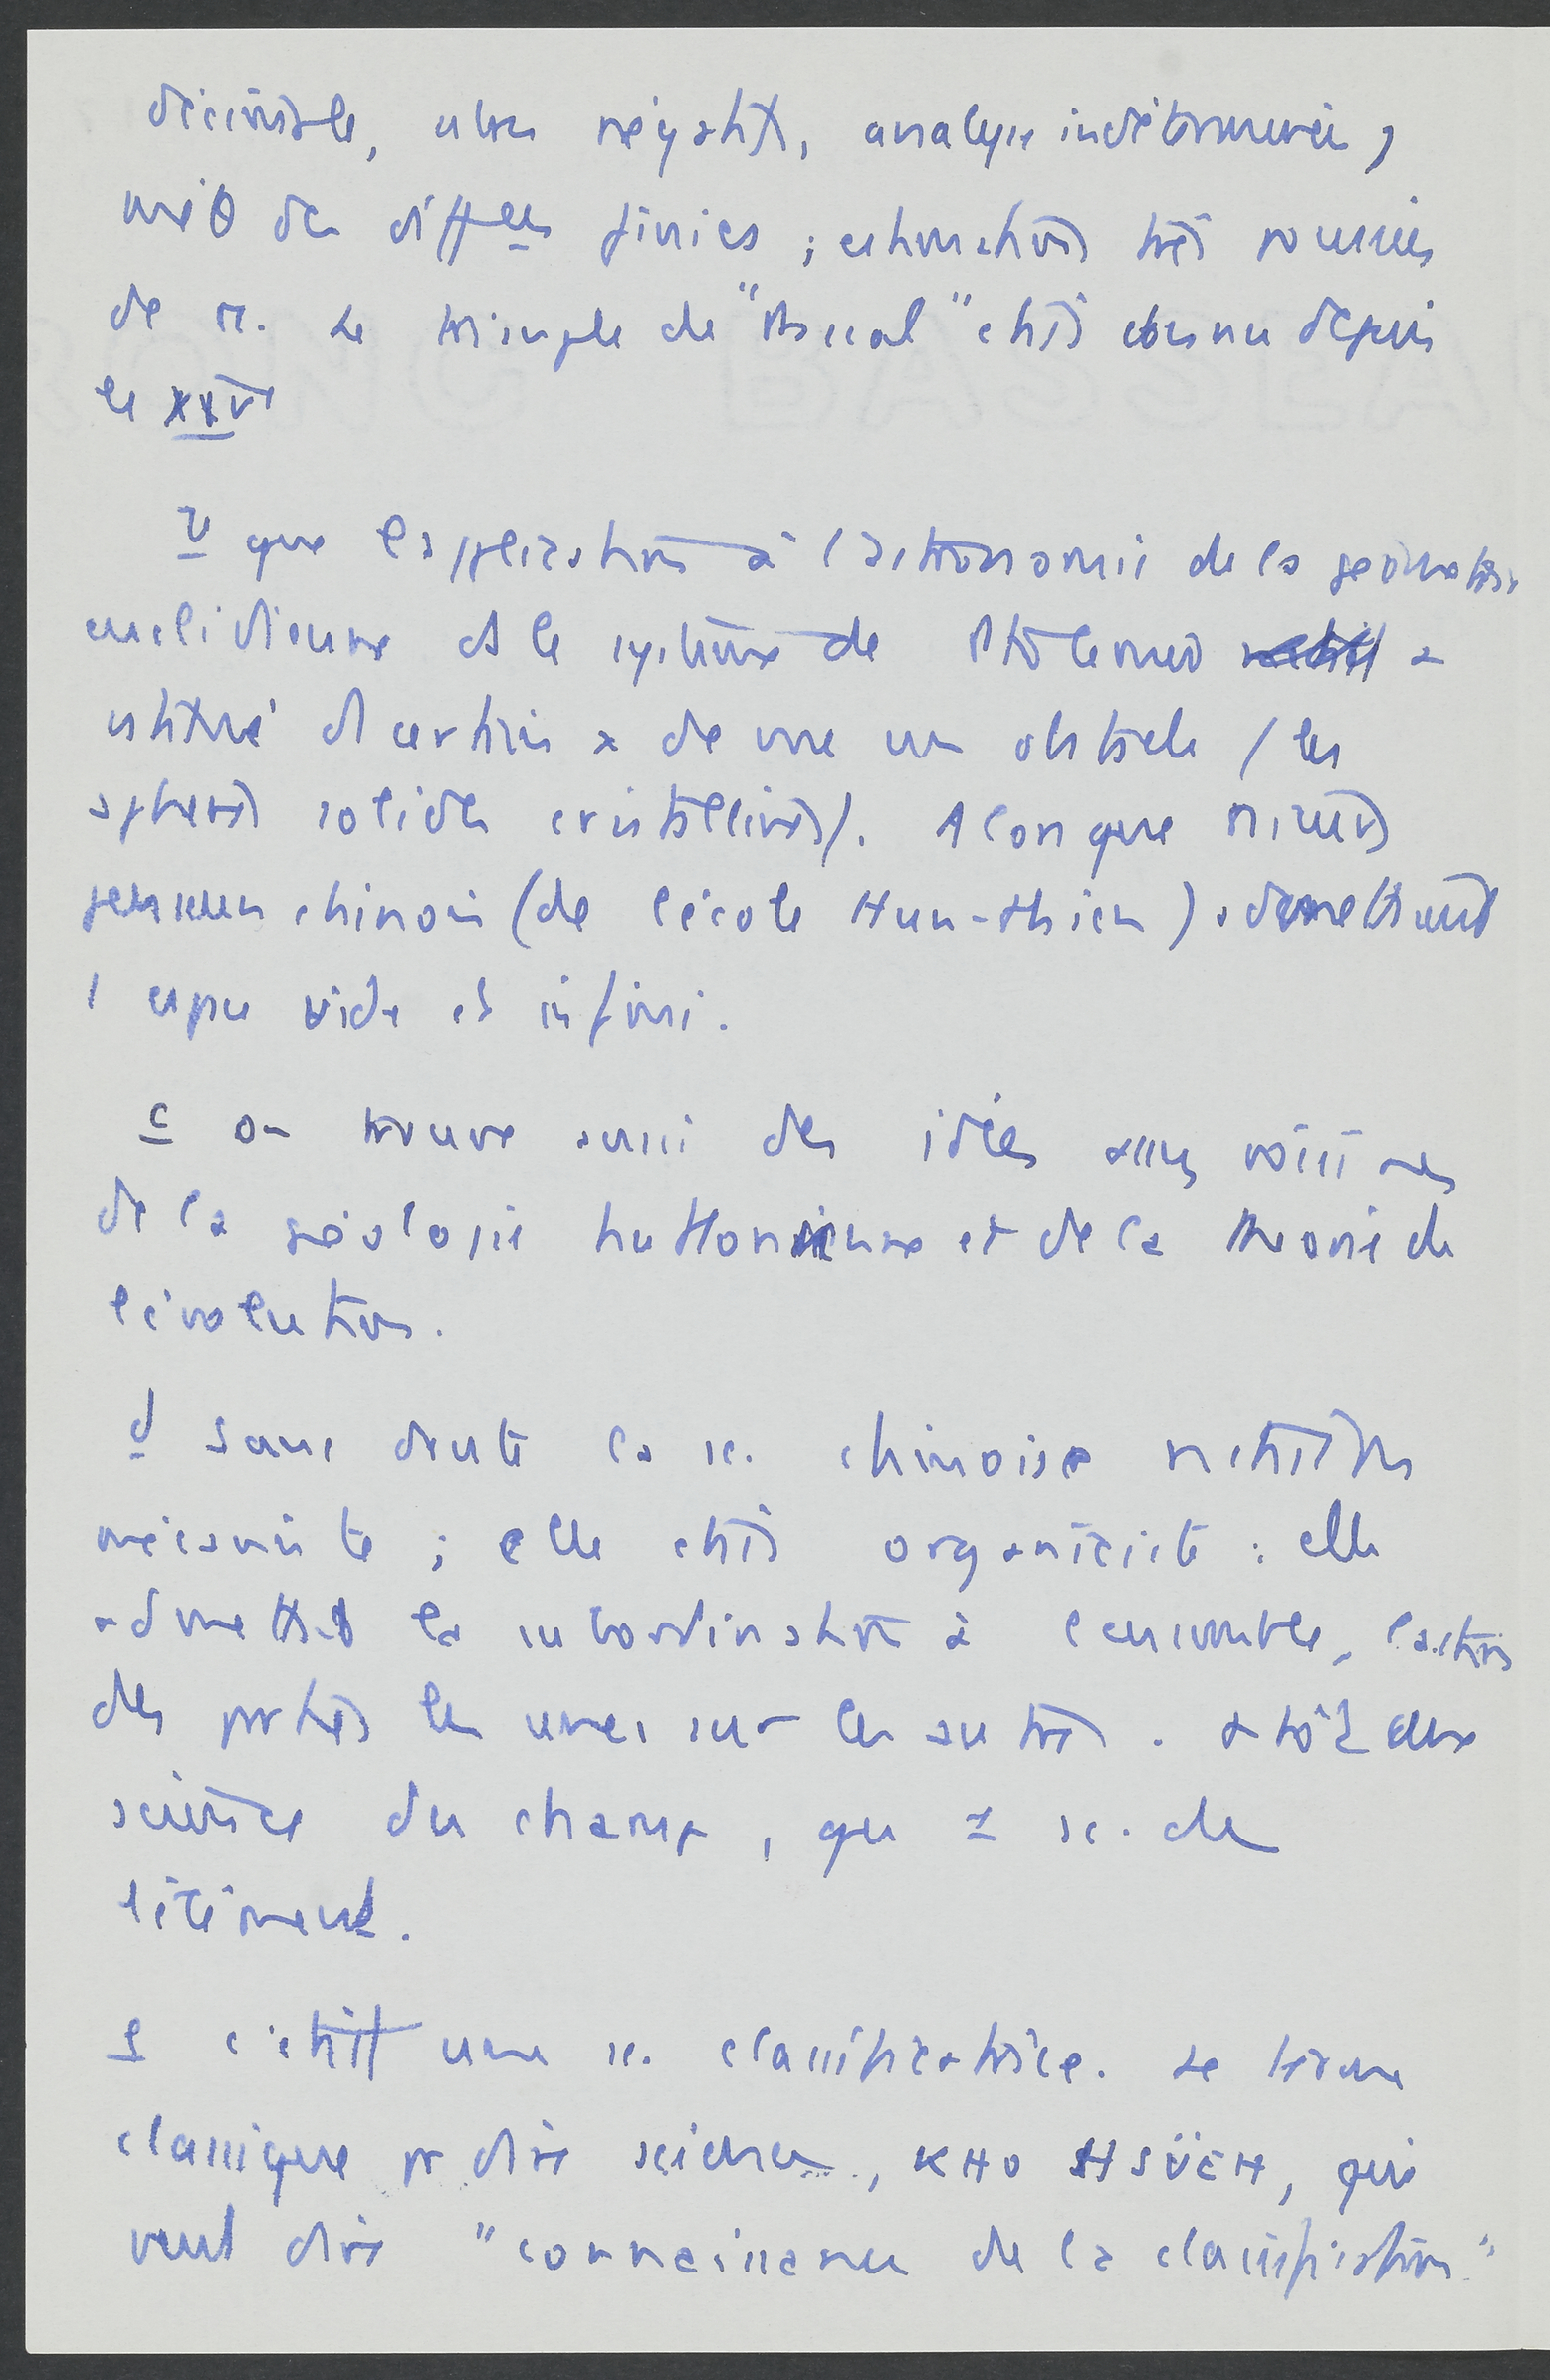 décimale, nbres négatifs, analyse indéterminée,
méθ des diffces finies ; estimations très poussées
de π. Le triangle de "Pascal" était connu depuis
le XIVe
b que l'application à l'astronomie de la géométrie
euclidienne et le système de Ptolémée a
été d certains de vue un obstacle (les
sphères solides cristallines). Alors que
penseurs chinois (de l'école Hun-thien) admettaient
l'espace vide et infini.
c on trouve aussi des idées assez voisines
de la géologie huttonienne et de la théorie de
l'évolution.
d sans doute la sc. chinoise n'était pas
mécaniste ; elle était organiciste : elle
admettait la subordination à l'ensemble, l'action
des parties les unes sur les autres. plutôt une
science du champ, qu' sc. de
l'élément.
e c'était une sc. classificatrice. Le terme
classique pr dire science, KHO HSÜEH, qui
veut dire "connaissance de la classification"